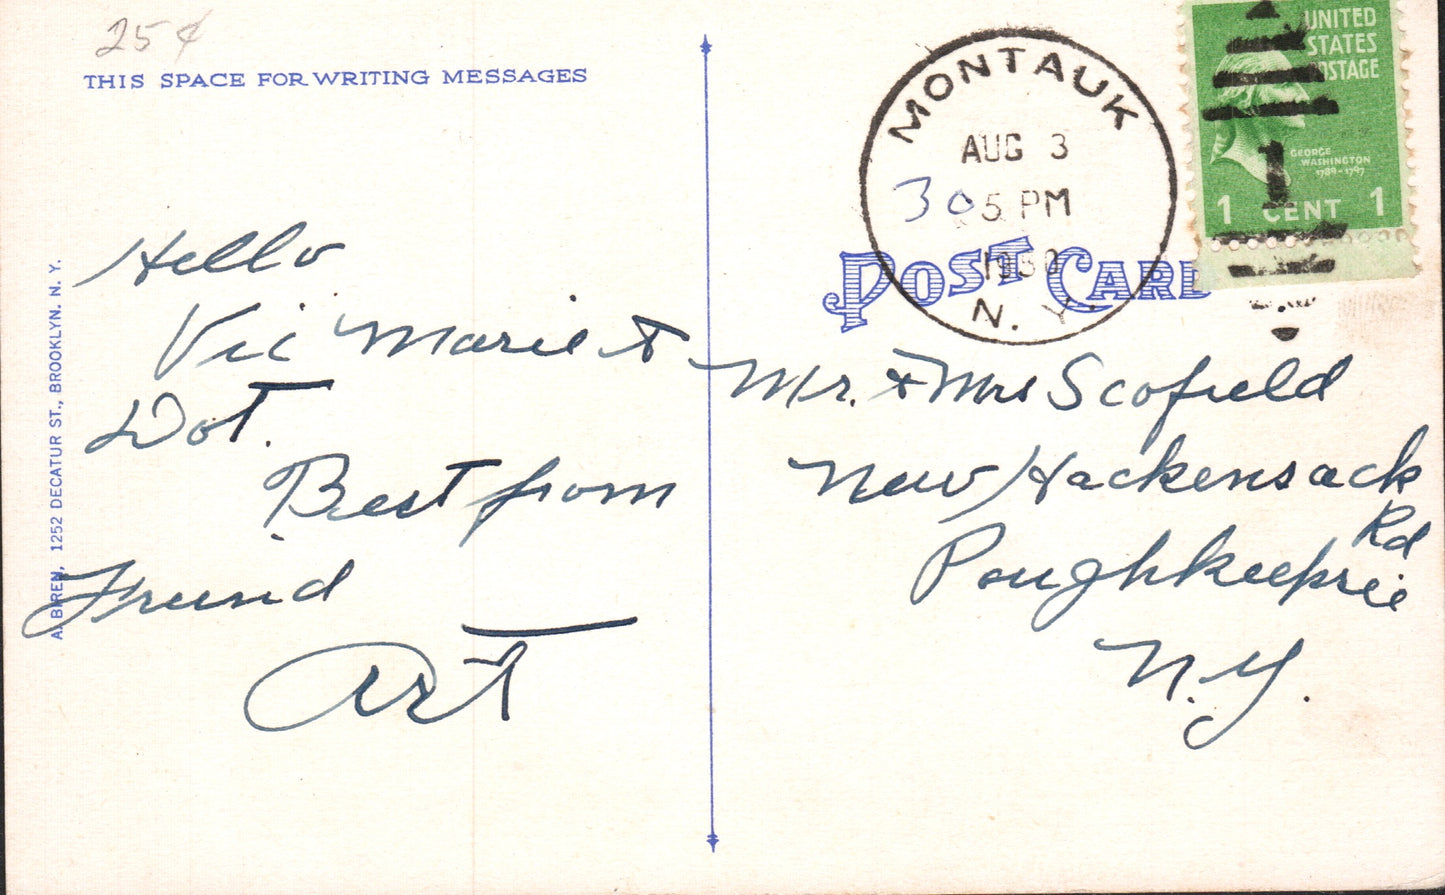 25¢
THIS SPACE FOR WRITING MESSAGES
Hello
Vic Marie &
Dot.
Best from
Friend
Art
A. BIREN, 1252 DECATUR ST., BROOKLYN, N. Y.
MONTAUK
AUG 3
30 5 PM
1950
N. Y.
UNITED
STATES
POSTAGE
GEORGE
WASHINGTON
1789-1797
1 CENT 1
1
POST CARD
Mr. & Mrs Scofield
New Hackensack
Rd
Poughkeepsie
N.Y.